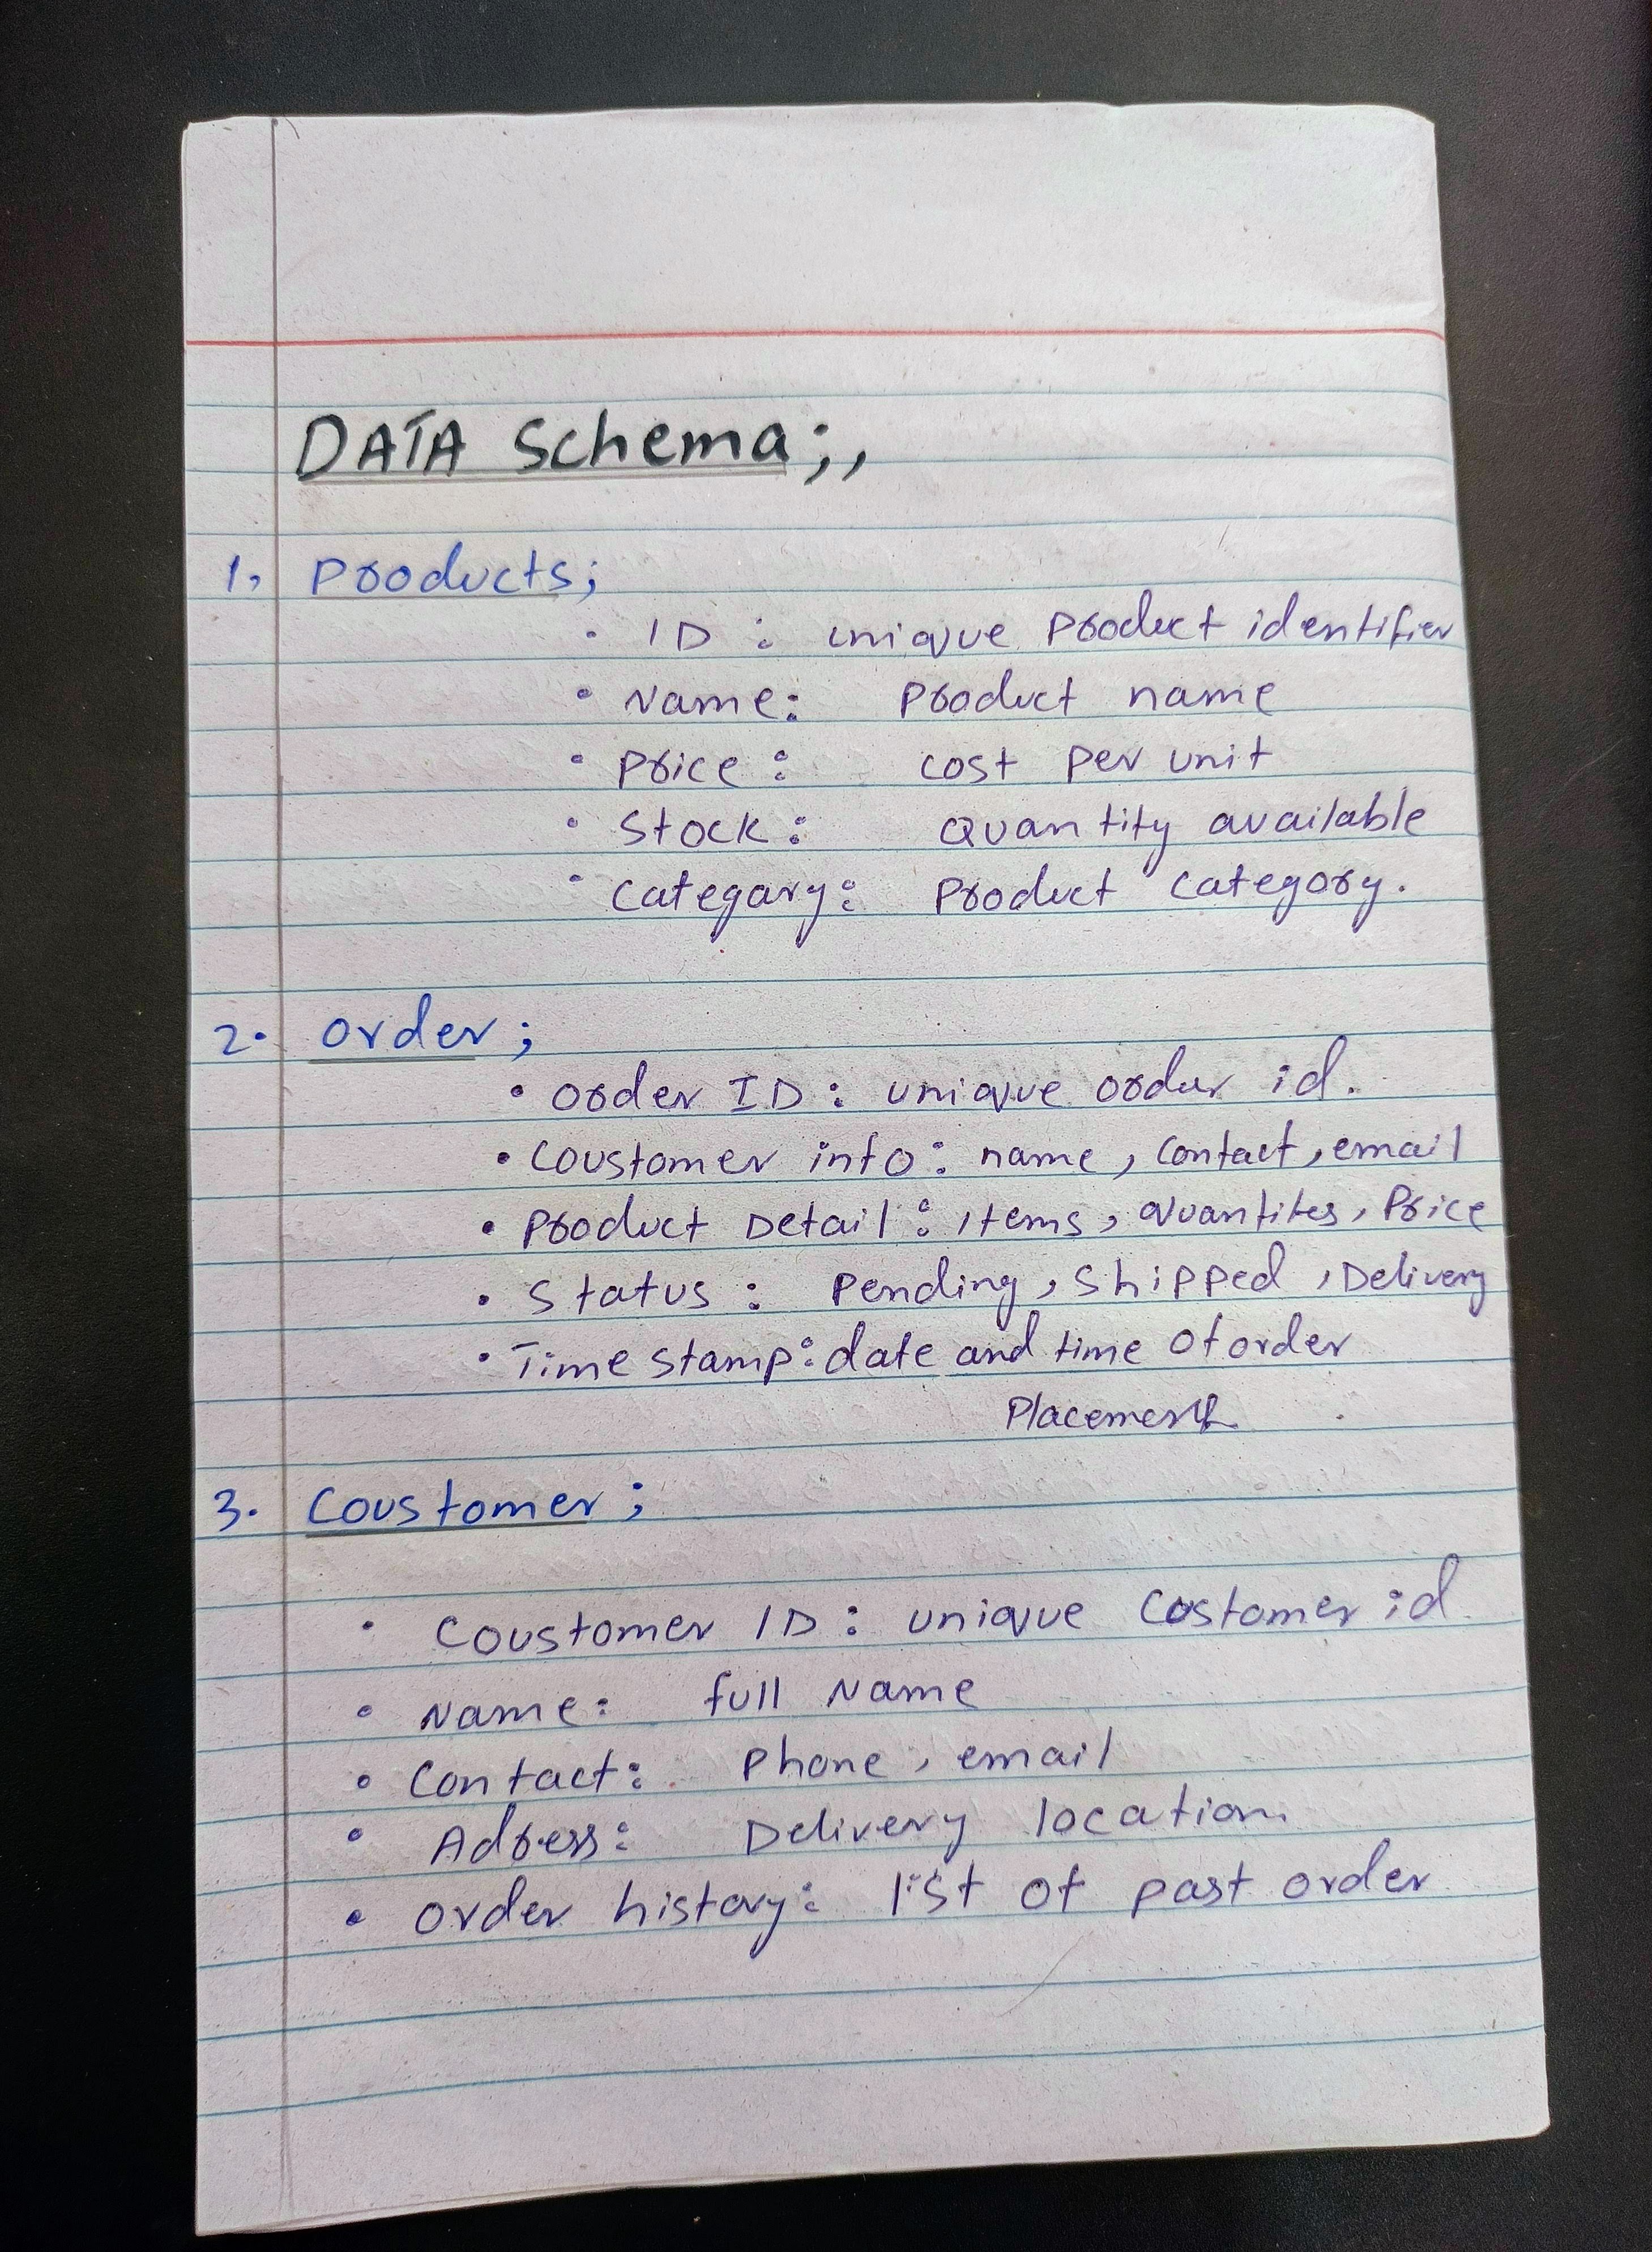 DATA Schema;,
1, Products;
• ID : unique Product identifier
• Name: Product name
• Price : cost per unit
• Stock : Quantity available
• Categary: Product Category.
2. order ;
• Order ID : unique order id.
• Coustomer info : name, Contact, email
• Product Detail : items, quantites, Price
• Status : Pending, Shipped, Delivery
• Time stamp : date and time of order
Placement
3. Coustomer ;
• Coustomer ID : unique Costomer id
• Name : full Name
• Contact : Phone, email
• Adress : Delivery location
• order history : list of past order